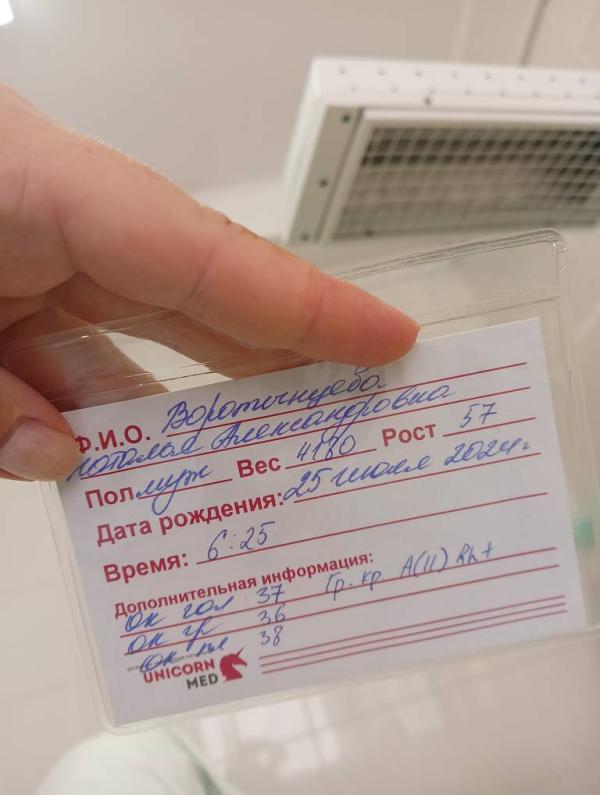 Ф.И.О. Воротынцева
Наталья Александровна
Пол муж Вес 4180 Рост 57
Дата рождения: 25 июля 2024г
Время: 6:25
Дополнительная информация:
ок гол 37 Гр. кр. A(II) Rh+
ок гр 36
ок 38
UNICORN
MED